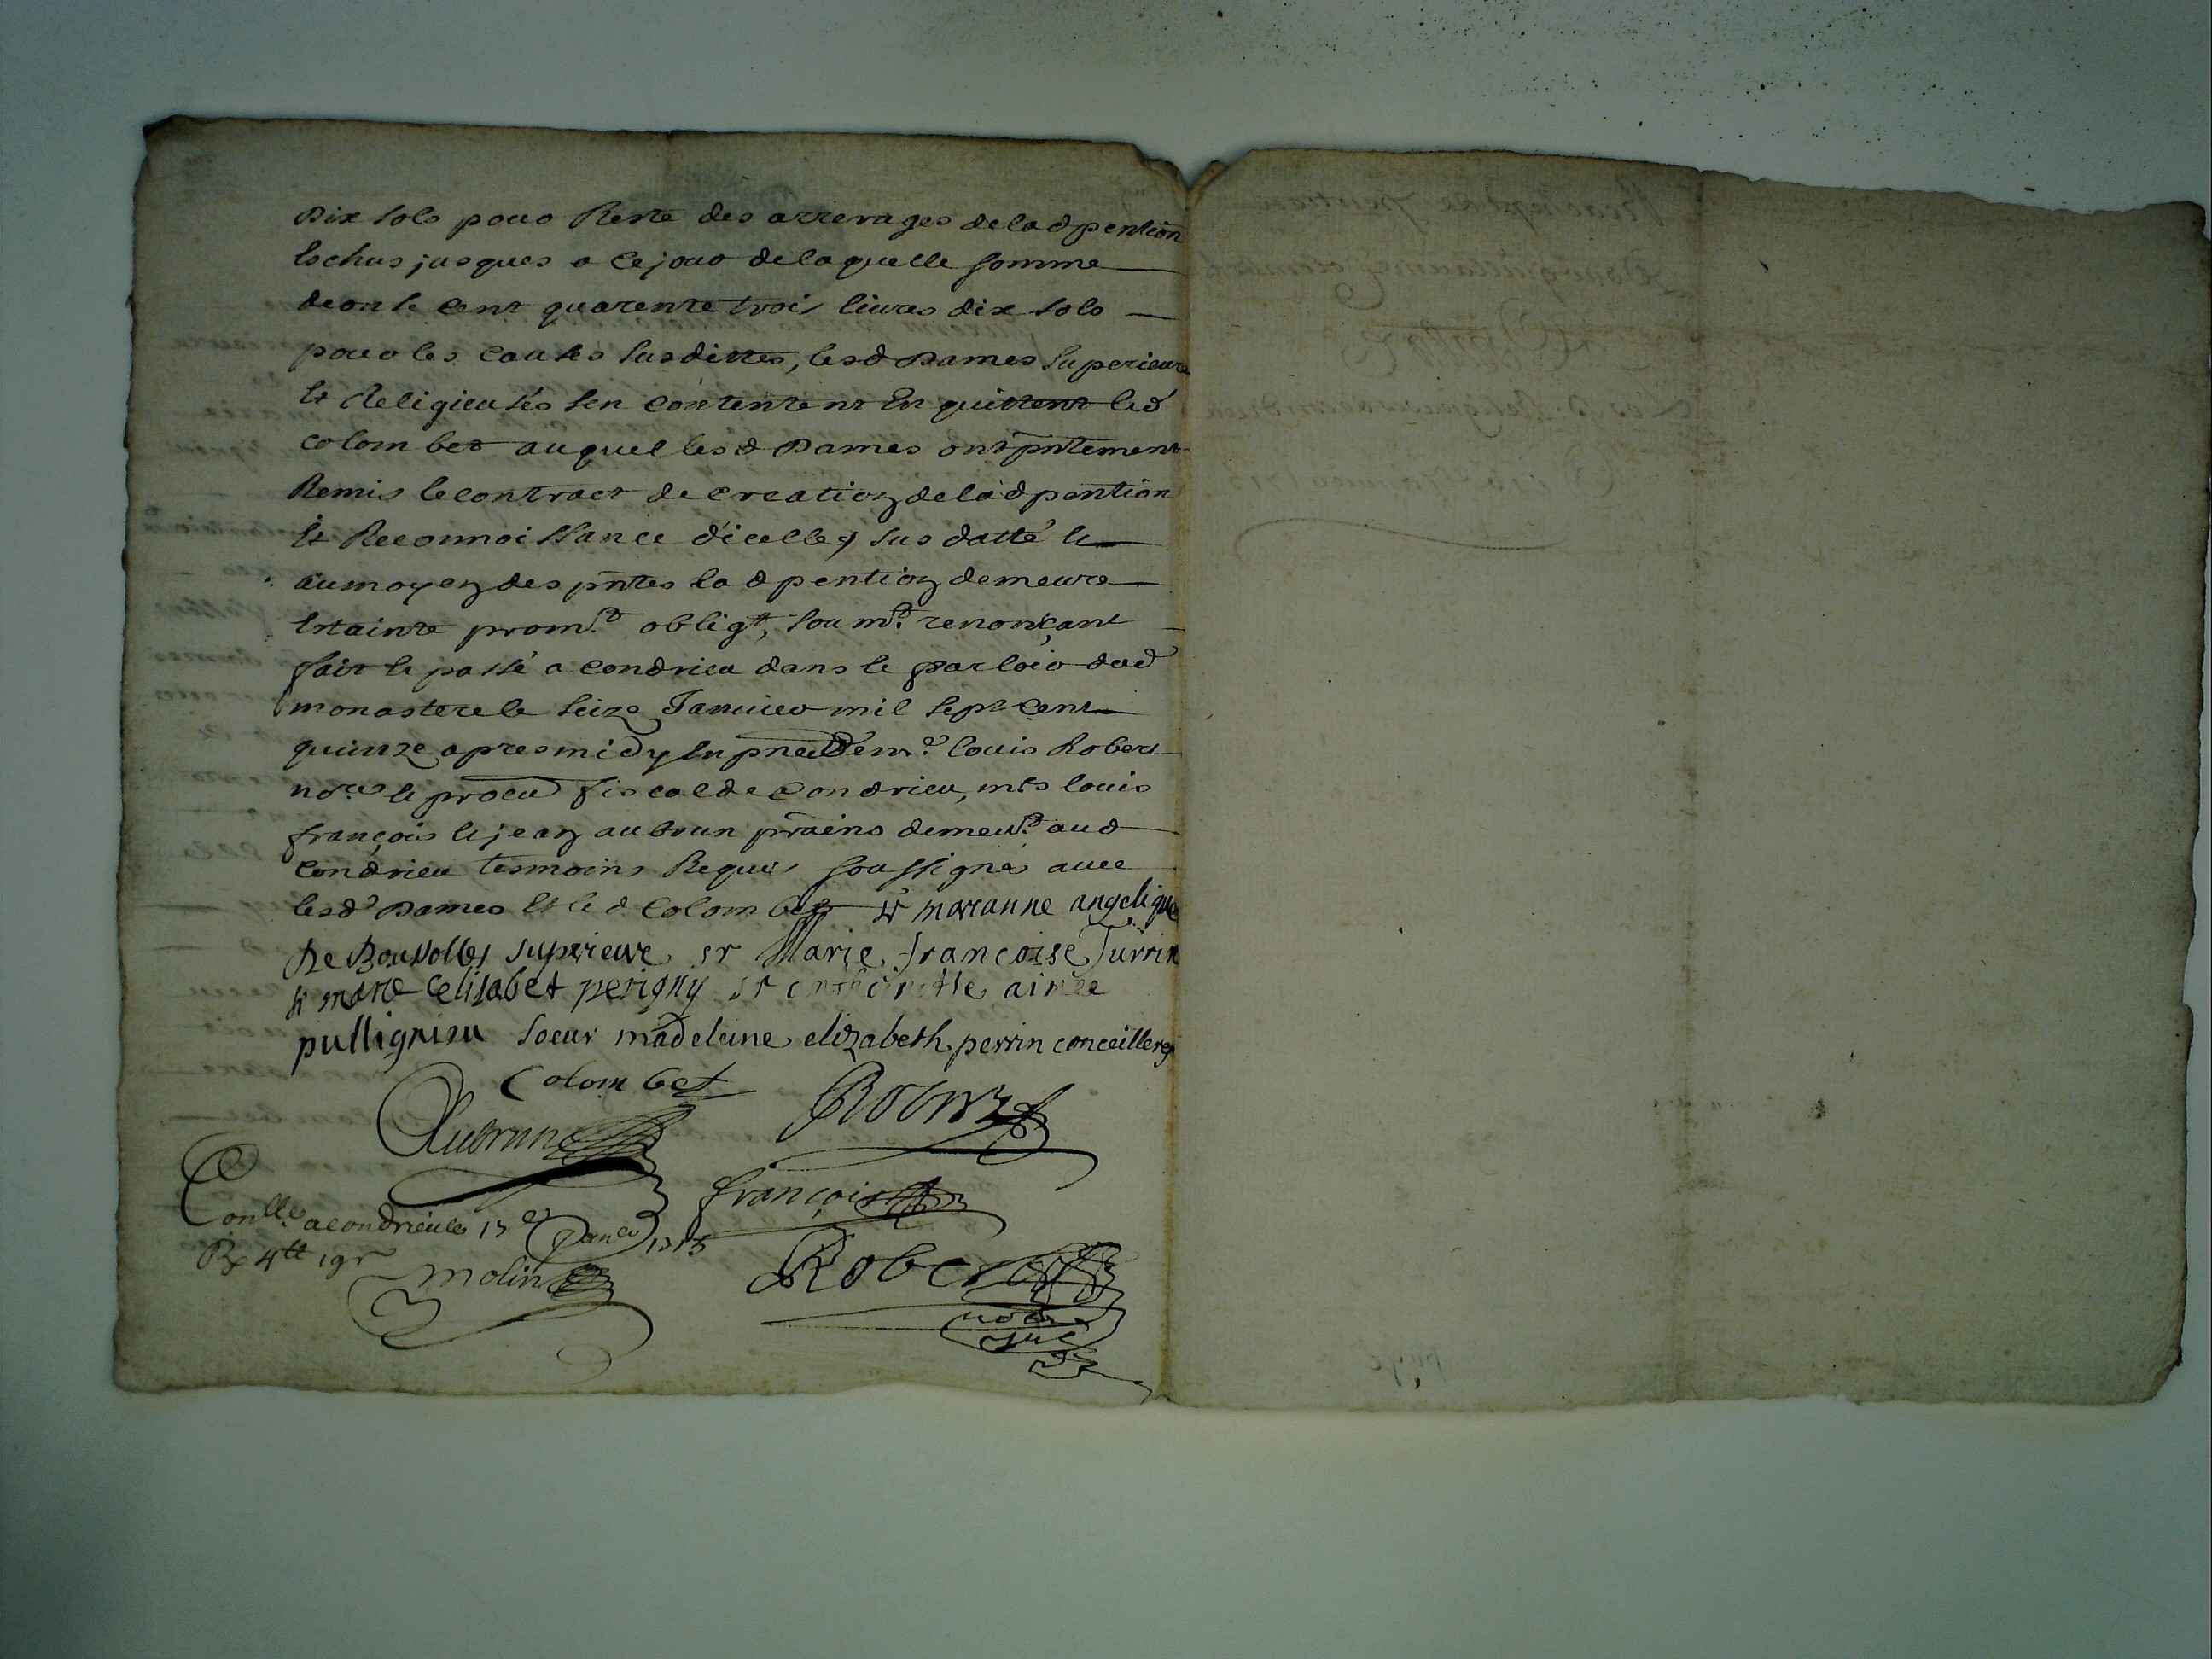 Dix sols pour Reste des arrerages de lad pention
Eschus jusques a ce jour de laquelle somme
de onse cent quarente trois livres dix sols
pour les causes susdittes, lesd Dames superieure
Et Religieuses sen contentent En quittent led
colombet auquel lesd Dames ont pntement
Remis le contract de creation de lad pention
Et Reconnoissance d'icelle sus datté Et
au moyen des pntes lad pention demeure
Estainte prom.t obligt, soum.t renonçant
fait et passé a condrieu dans le parloir dud
monastere le seize Janvier mil sept cent
quinze apres midy En pnce de m.e louis Robert
no.re et procu fiscal de condrieu, mes louis
françois et jean aubrun pratins demeu.t aud
condrieu tesmoins Requis soussignés avec
lesd Dames Et led Colombet sr marianne angelique
De Boussolles superieure sr Marie francoise Turrin
sr marie elisabet perigny sr aimée
pullignieu soeur madeleine elizabeth perrin conceillere
Colombet
Robert
Aubrun
françois
Conlle a condrieu le 17e Janer 1715
Rx 4tt 19s
molin
Robert